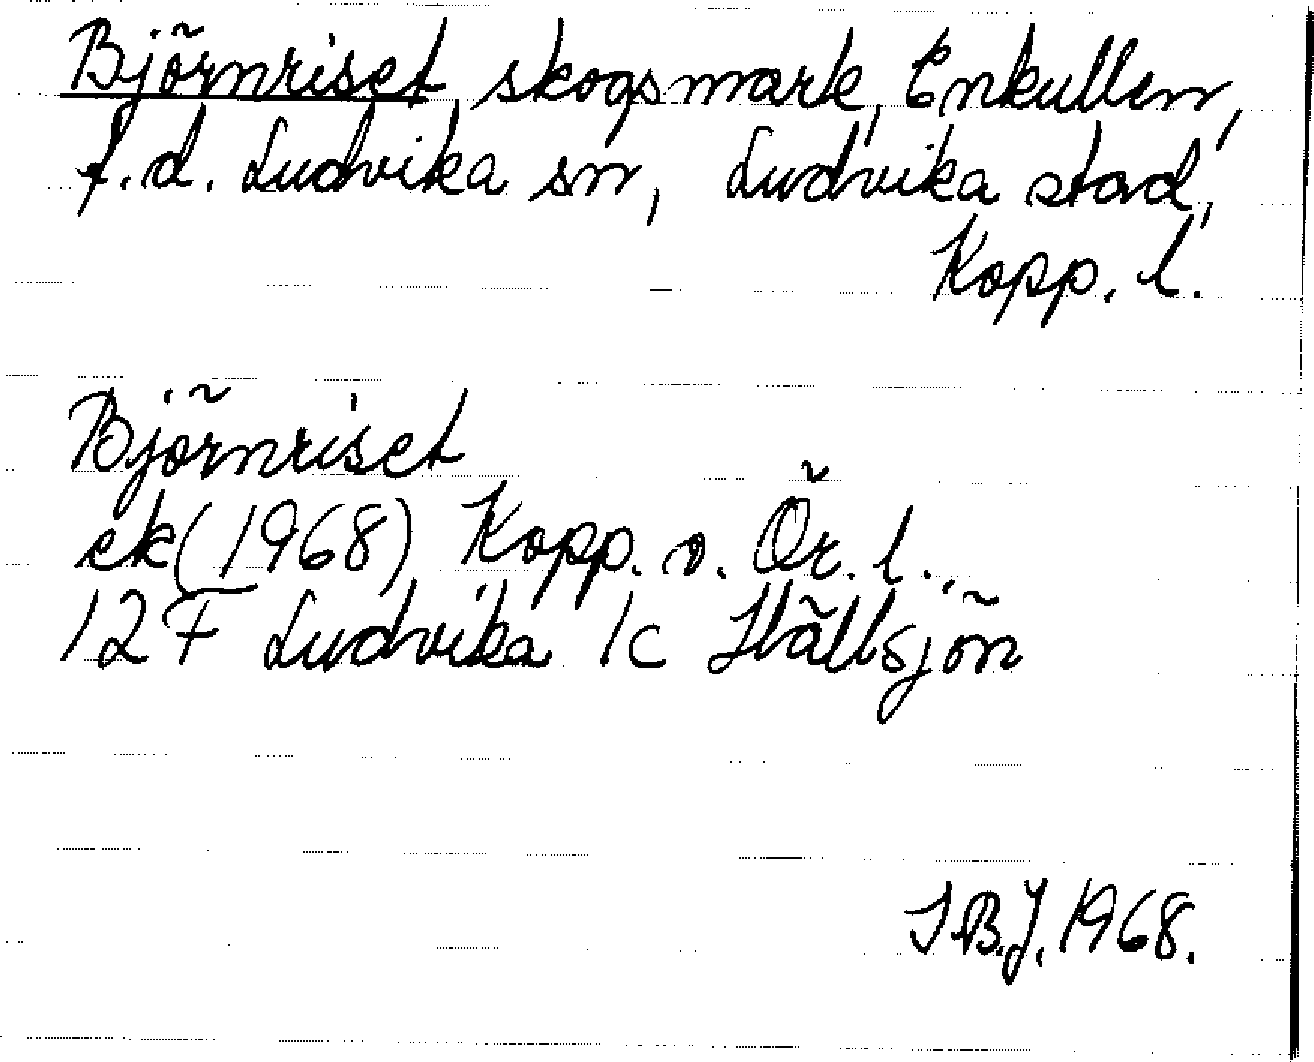 Björnriset, skogsmark, Enkullen,
f.d. Ludvika sn, Ludvika stad,
Kopp. l.
Björnriset
ek(1968) Kopp. o. Ör. l.,
12F Ludvika 1c Hällsjön
I.B.J. 1968.